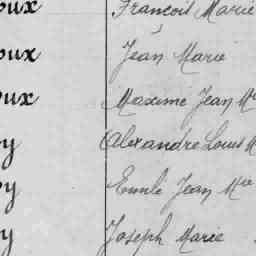 oux François Marie
oux Jean Marie
oux Maxime Jean Mie
y Alexandre Louis M
y Emile Jean Mie
y Joseph Marie